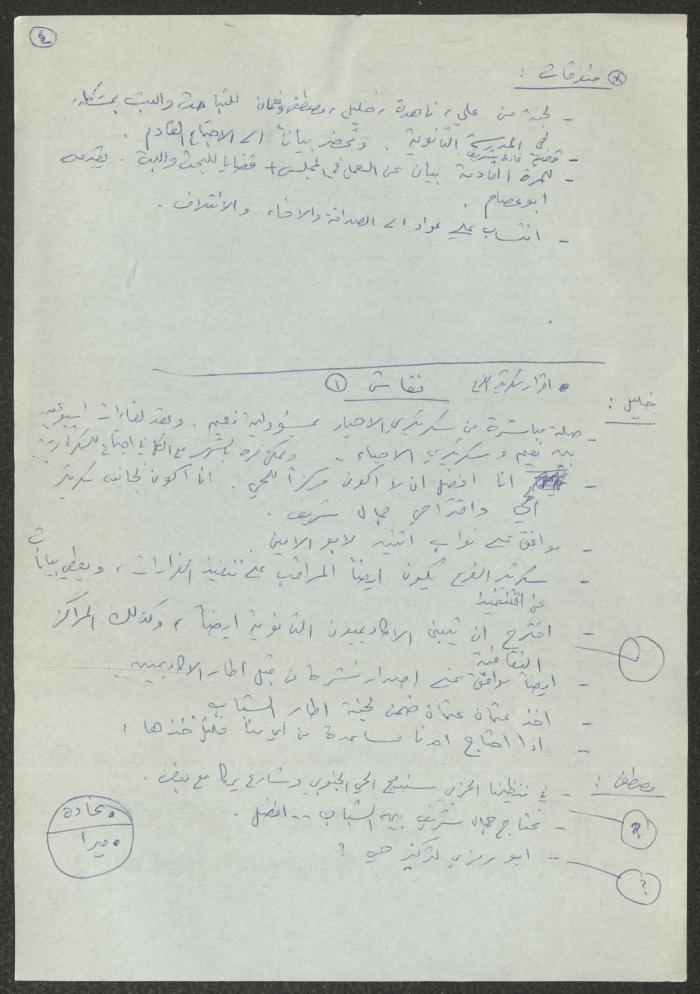 ٤
* متفرقات :
- لجنة من علي، ناهدة، خليل، مصطفى ونعمان للتباحث والبت بمشكلة
في المدرسة الثانوية. وتحضر بياناً الى الاجتماع القادم.
- قضية غادة شريف
- للمرة القادمة بيان عن العمل في المجلس + قضايا للبحث والبت. يقدمه
ابو عصام.
- انتساب علي عواد الى الصداقة والاخاء والائتلاف.
نقاش ①
• اقرار سكرتير الفرع
خليل :
- صلة مباشرة من سكرتيري الاحياء بمسؤولية نعيم. وعقد لقاءات اسبوعية
بين نعيم وسكرتيري الاحياء - ويمكن مرة بالشهر مع اجتماع للسكرتارية.
- انا افضل ان لا اكون مركزاً للحي. انا اكون بجانب سكرتير
الحي واقتراحي جمال شريف.
- موافق على نواب اثنين لابو الامين
- سكرتير الفرع يكون ايضاً المراقب على تنفيذ القرارات، ويعطي بيانات
عن التنفيذ
- اقترح ان يتبنى الاكاديميون الثانوية ايضاً، وكذلك المراكز
الثقافية
- ايضاً موافق على اصدار نشرة من قبل اطار الاكاديميين
- اخذ عثمان عثمان ضمن لجنة اطار الشباب
- اذا احتاج احدنا مساعدة من اي منا فليأخذها!
مصطفى :
- في تنظيمنا الحزبي سندمج الحي الجنوبي وشارع يركا مع بعض.
- نحتاج جمال شريف بين الشباب .. افضل.
?
- ابو رمزي لتركيز حي ؟
?
• غادة
• ميرا